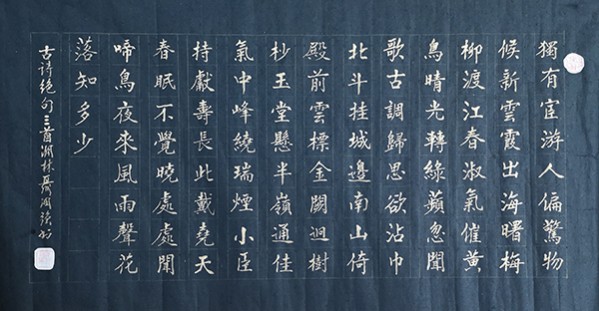 獨有宦游人偏驚物
候新雲霞出海曙梅
柳渡江春淑氣催黃
鳥晴光轉綠蘋忽聞
歌古調歸思欲沾巾
北斗挂城邊南山倚
殿前雲標金闕迴樹
杪玉堂懸半嶺通佳
氣中峰繞瑞煙小臣
持獻壽長此戴堯天
春眠不覺曉處處聞
啼鳥夜來風雨聲花
落知多少
古詩絕句三首